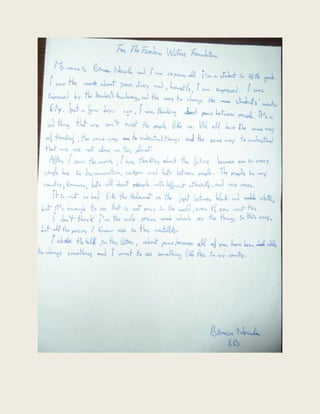 For The Freedom Writers Foundation
My name is Neculae and I am years old. I'm a student in 8th grade.
I saw the movie about your story and, honestly, I am impressed. I was
impressed by the teacher's teachings, and the way to change the students' menta-
lity. Just a few days ago, I was thinking about peace between people. It's a
sad thing that we can't accept the people like us. We all have the same way
of thinking, the same way to understand things and the same way to understand
that we are not alone on this planet.
After I saw the movie, I was thinking about the future because now in every
single has to discrimination, racism and hate between people. The people in my
country, Romania, hate all about people with different ethnicity, and race.
It is not so bad like the Holocaust or the fight between black and white,
but it's enough to see that is not peace in the world, even if you want this.
I don't think I'm the only person which see the things in this way,
but all the persons I know are in this mentality.
I to talk, in this letter, about peace, because all of you have been able
to change something and I want to see something like this in my country.
Neculae
8B